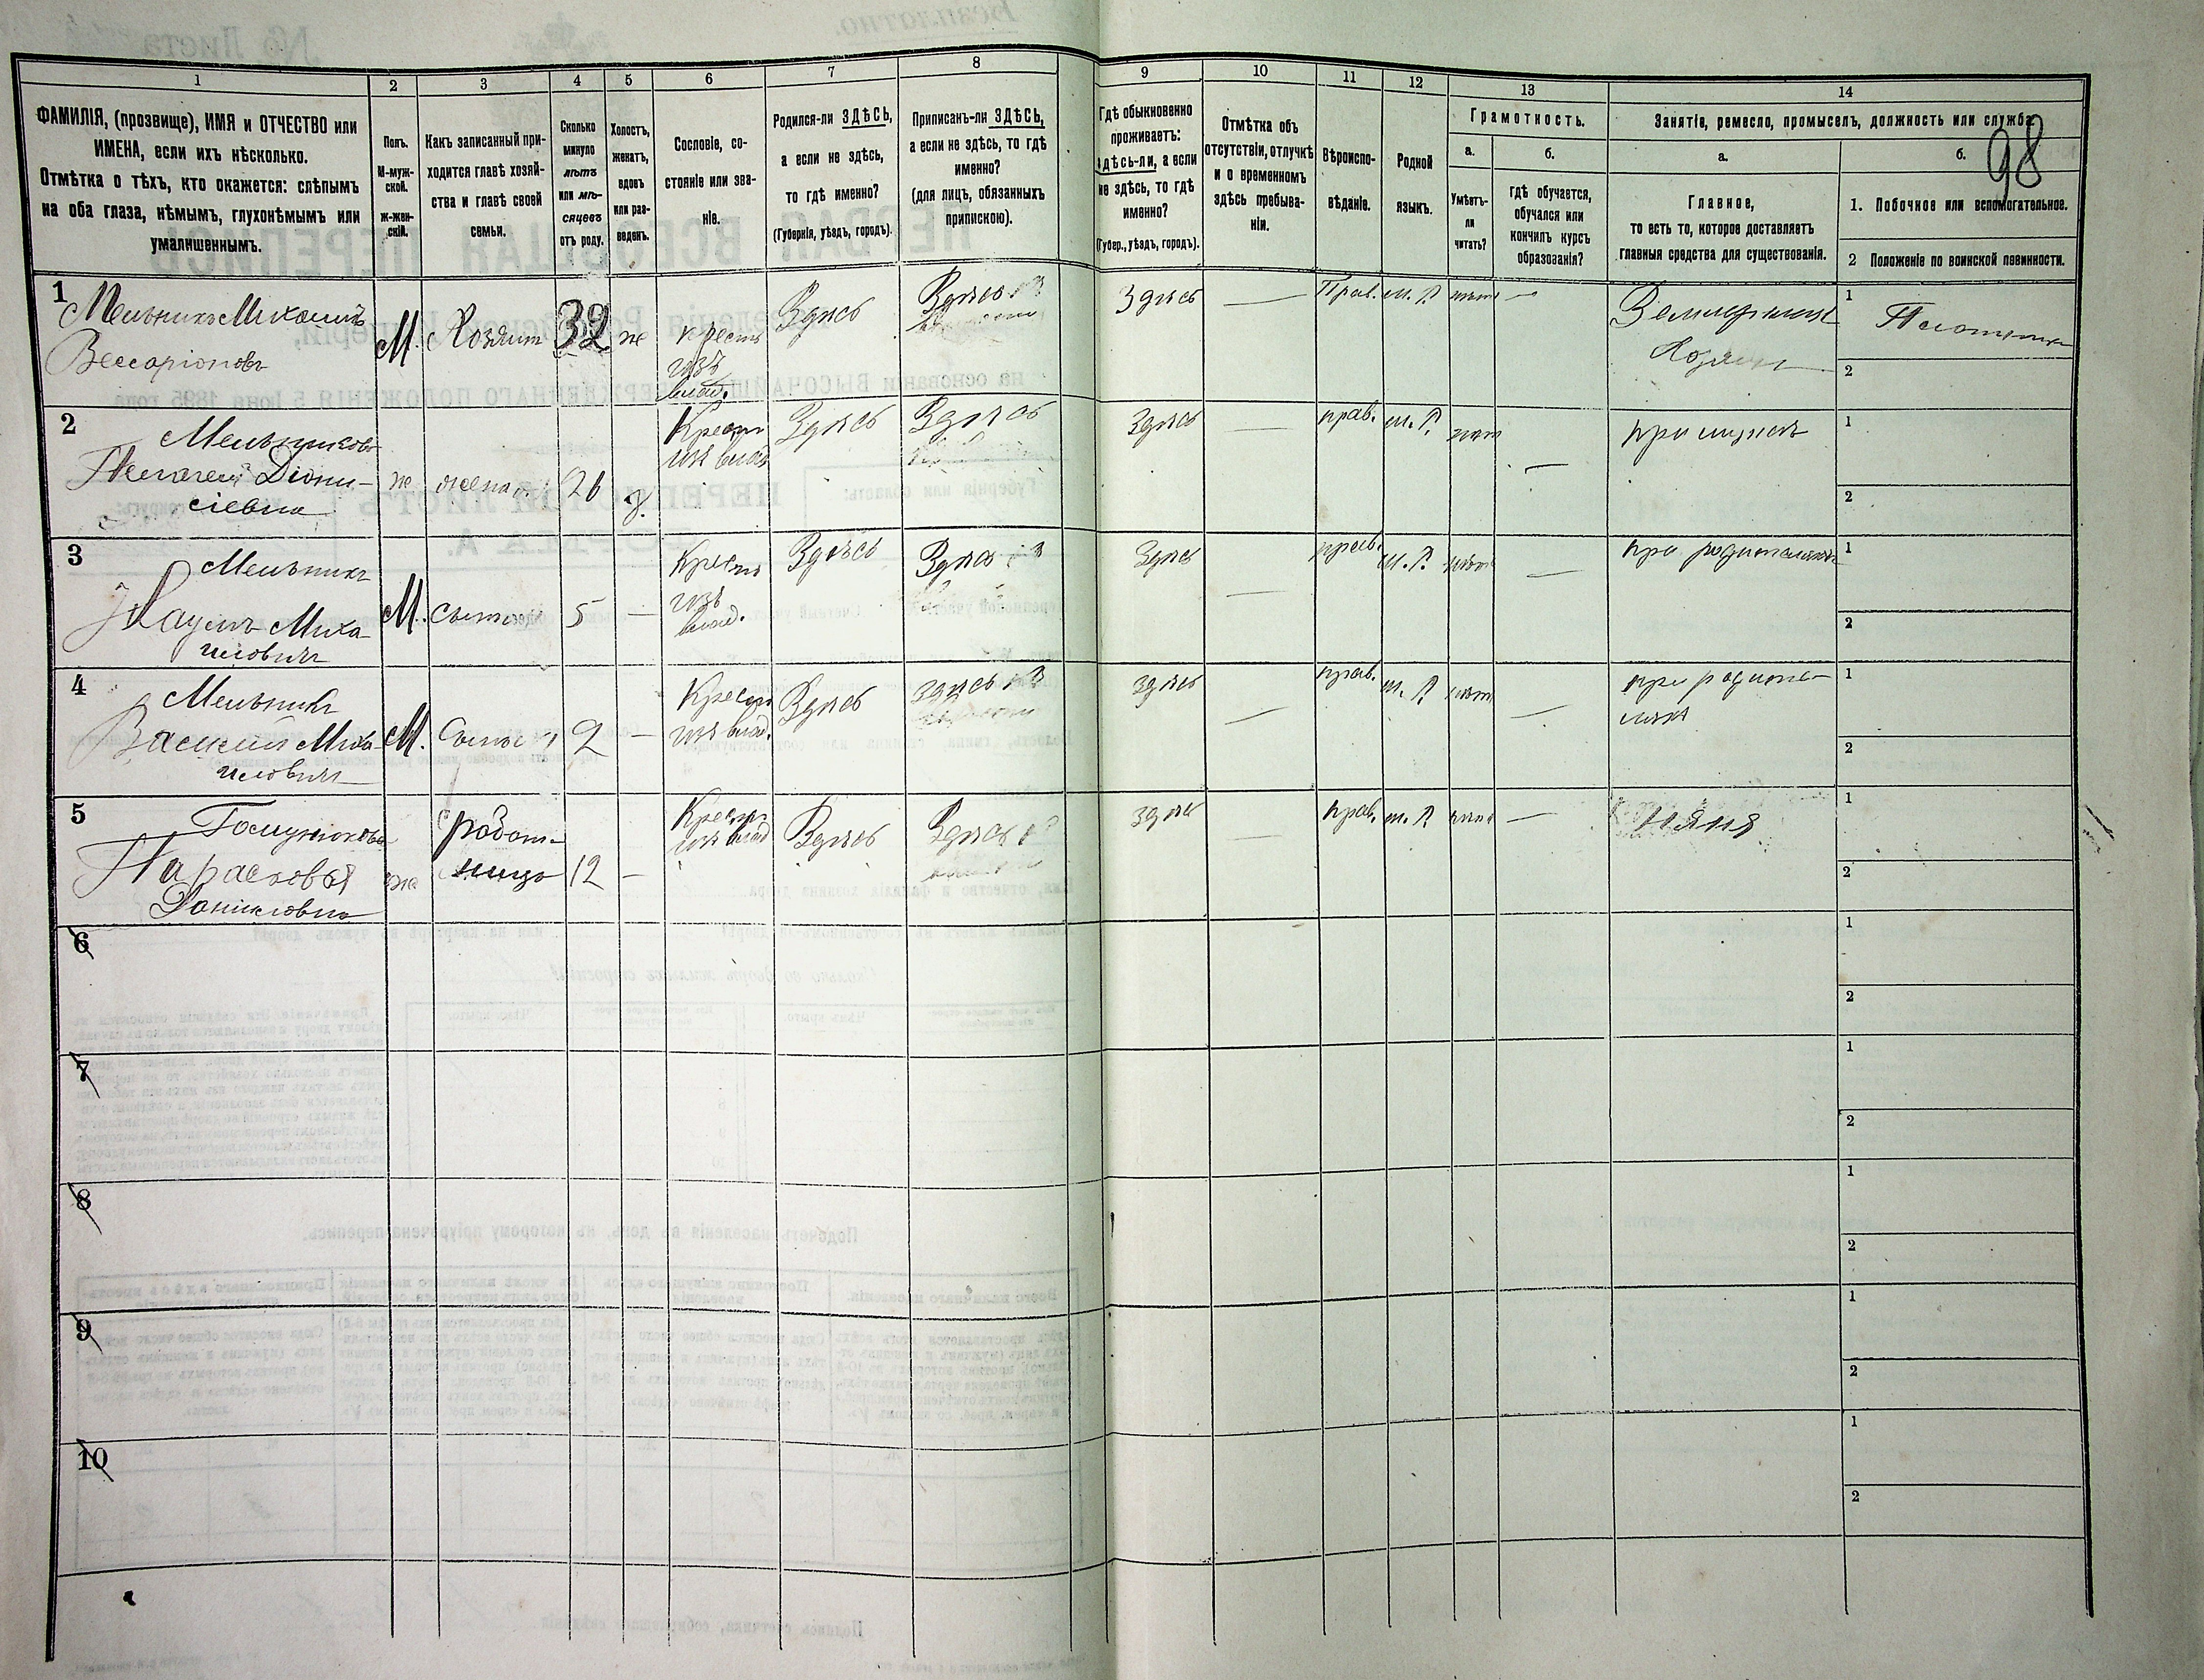 98
1
2
3
4
5
6
7
8
9
10
11
12
13
14
ФАМИЛІЯ, (прозвище), ИМЯ и ОТЧЕСТВО или
ИМЕНА, если ихъ нѣсколько.
Отмѣтка о тѣхъ, кто окажется: слѣпымъ
на оба глаза, нѣмымъ, глухонѣмымъ или
умалишеннымъ.
Полъ.
М-муж-
ской.
ж-жен-
скій.
Какъ записанный при-
ходится главѣ хозяй-
ства и главѣ своей
семьи.
Сколько
минуло
лѣтъ
или мѣ-
сяцевъ
отъ роду.
Холостъ,
женатъ,
вдовъ
или раз-
веденъ.
Сословіе, со-
стояніе или зва-
ніе.
Родился-ли ЗДѢСЬ,
а если не здѣсь,
то гдѣ именно?
(Губернія, уѣздъ, городъ).
Приписанъ-ли ЗДѢСЬ,
а если не здѣсь, то гдѣ
именно?
(для лицъ, обязанныхъ
припискою).
Гдѣ обыкновенно
проживаетъ:
здѣсь-ли, а если
не здѣсь, то гдѣ
именно?
(Губер., уѣздъ, городъ).
Отмѣтка объ
отсутствіи, отлучкѣ
и о временномъ
здѣсь пребыва-
ніи.
Вѣроиспо-
вѣданіе.
Родной
языкъ.
Грамотность.
а.
Умѣетъ-
ли
читать?
б.
гдѣ обучается,
обучался или
кончилъ курсъ
образованія?
Занятіе, ремесло, промыселъ, должность или служба
а.
Главное,
то есть то, которое доставляетъ
главныя средства для существованія.
б.
1. Побочное или вспомогательное.
2 Положеніе по воинской повинности.
1
Мельникъ Михаилъ
Вессаріоновъ
М. Хозяинъ 32 ж
крестъ
изъ
влад.
Здѣсь
Здѣсь
Здѣсь
—
Прав. м. Р. нѣтъ —
Хозяинъ
1
Плотникъ
2
2
Мельникова
Діони-
сіевна
ж жена 26 з.
Крест
изъ влад
Здѣсь
Здѣсь
Здѣсь
—
прав. м. Р. нѣтъ —
при мужѣ
1
2
3
Мельникъ
Наумъ Миха
иловичъ
М. сынъ 5 —
Крест
изъ
влад.
Здѣсь
Здѣсь
Здѣсь
—
прав. м. Р. нѣтъ —
при родителяхъ
1
2
4
Мельникъ
Василій Миха
иловичъ
М. Сынъ 2 —
Крест
изъ влад.
Здѣсь
здѣсь
здѣсь
—
прав. м. Р. нѣтъ —
при родите-
ляхъ
1
2
5
Парасковья
Даниловна
ж
работ-
ница
12 —
Крест
изъ влад
Здѣсь
Здѣсь
здѣсь
—
прав. м. Р. нѣтъ —
няня
1
2
6
1
2
7
1
2
8
1
2
9
1
2
10
1
2